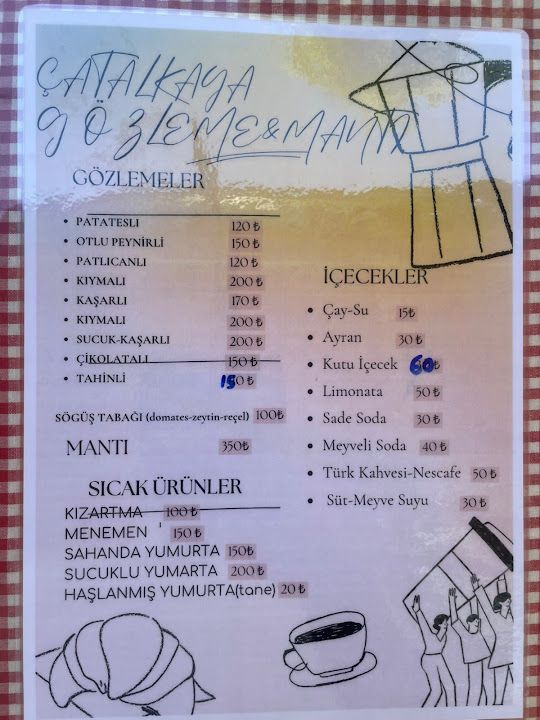 ÇATALKAYA
GÖZLEME&MANTI
GÖZLEMELER
• PATATESLI 120 ₺
• OTLU PEYNİRLİ 150 ₺
• PATLICANLI 120 ₺
• KIYMALI 200 ₺
• KAŞARLI 170 ₺
• KIYMALI 200 ₺
• SUCUK-KAŞARLI 200 ₺
• ÇİKOLATALI 150 ₺
• TAHİNLİ 150 ₺
SÖGÜŞ TABAĞI (domates-zeytin-reçel) 100₺
MANTI 350₺
SICAK ÜRÜNLER
KIZARTMA 100 ₺
MENEMEN 150 ₺
SAHANDA YUMURTA 150₺
SUCUKLU YUMARTA 200 ₺
HAŞLANMIŞ YUMURTA(tane) 20 ₺
İÇECEKLER
• Çay-Su 15₺
• Ayran 30 ₺
• Kutu İçecek 60 ₺
• Limonata 50 ₺
• Sade Soda 30 ₺
• Meyveli Soda 40 ₺
• Türk Kahvesi-Nescafe 50 ₺
• Süt-Meyve Suyu 30 ₺